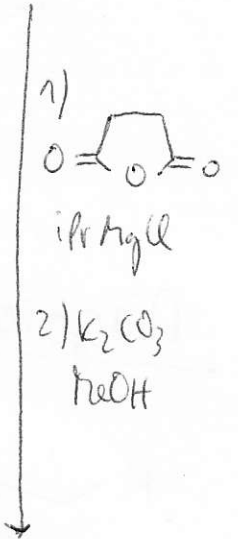 1)
O O O
iPrMgCl
2) K₂CO₃
MeOH